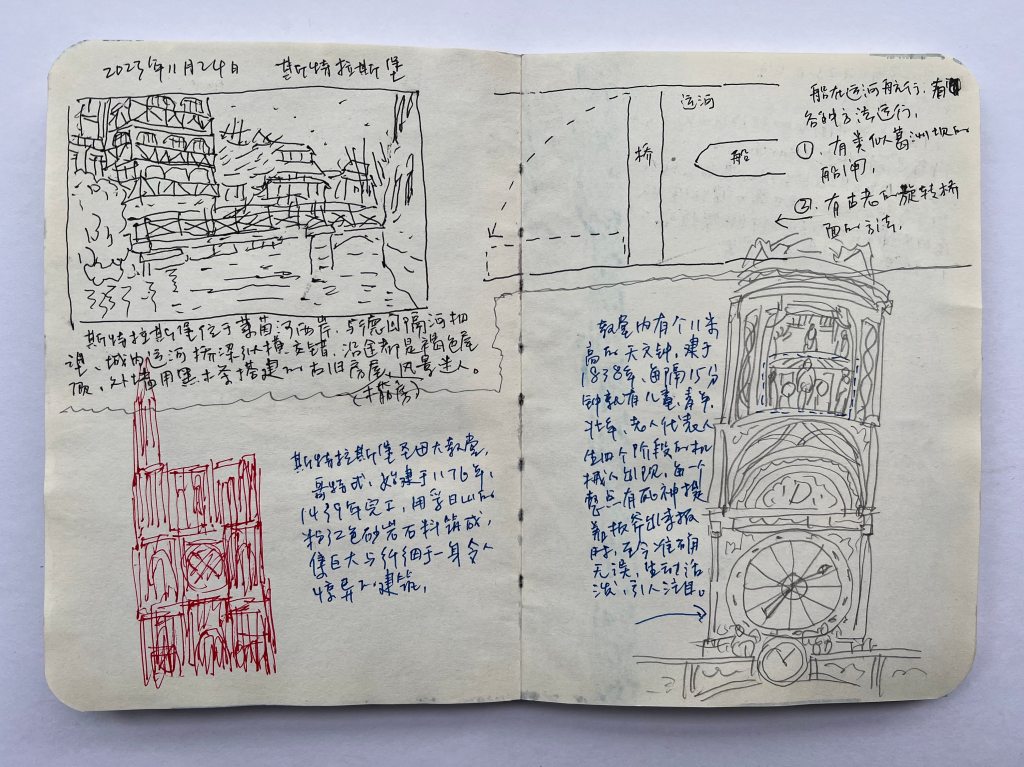 2023年11月24日 斯特拉斯堡
斯特拉斯堡位于莱茵河西岸,与德国隔河相
望、城内运河桥梁纵横交错,沿途都是褐色屋
顶,外墙用黑木条搭建的古旧房屋,风景迷人。
(木筋房)
斯特拉斯堡圣母大教堂,
哥特式,始建于1176年,
1439年完工,用孚日山的
粉红色砂岩石料筑成,
集巨大与纤细于一身令人
惊异的建筑,
运河
桥
船
船在运河航行,有
各种方法运行,
①、有类似葛洲坝的
船闸,
②、有古老的旋转桥
面的方法,
教堂内有个11米
高的天文钟,建于
1838年,每隔15分
钟就有儿童、青年、
壮年、老人代表人
生四个阶段的机
械人出现,每一个
整点有死神提
着板斧出来报
时,至今准确
无误,生动活
泼,引人注目。